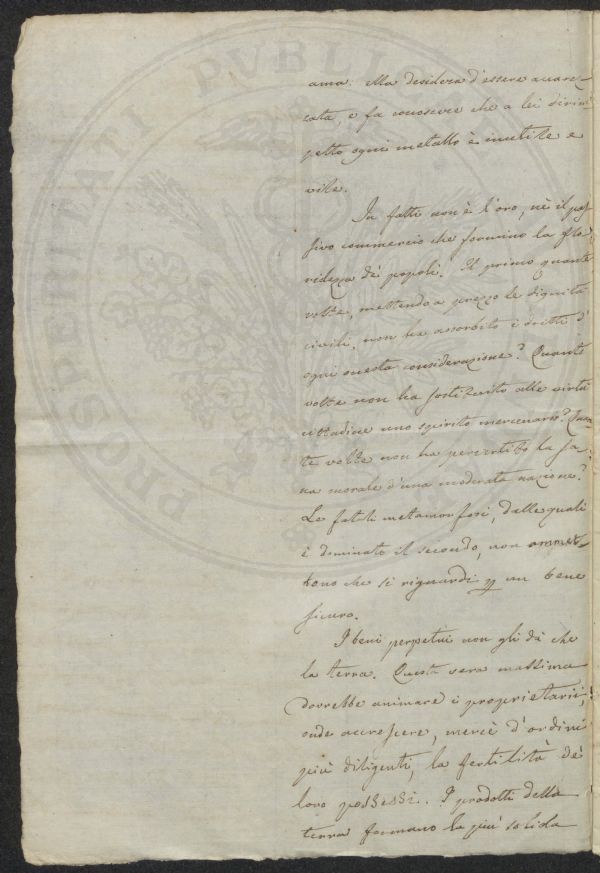 ama. Ma desidera d'essere accarez-
zata, e fa conoscere che a lei dirim
petto ogni metallo è inutile e
vile.
In fatti non è l'oro, nè il pas
sivo commercio che formino la flo
ridezza de' popoli. Il primo quante
volte, mettendo a prezzo le dignità
civili, non ha assorbito i dritti d'
ogni onesta considerazione? Quante
volte non ha sostituito alle virtù
cittadine uno spirito mercenario? Quan
te volte non ha pervertito la sa
na morale d'una moderata nazione?
Le fatali metamorfosi, dalle quali
è dominato il secondo, non ammet-
tono che si riguardi p un bene
sicuro.
I beni perpetui non gli dà che
la terra. Questa vera massima
dovrebbe animare i proprietarii,
onde accrescere, mercè d'ordini
più diligenti, la fertilità de'
loro possessi. I prodotti della
terra formano la più solida
PROSPERITATI PVBLIC